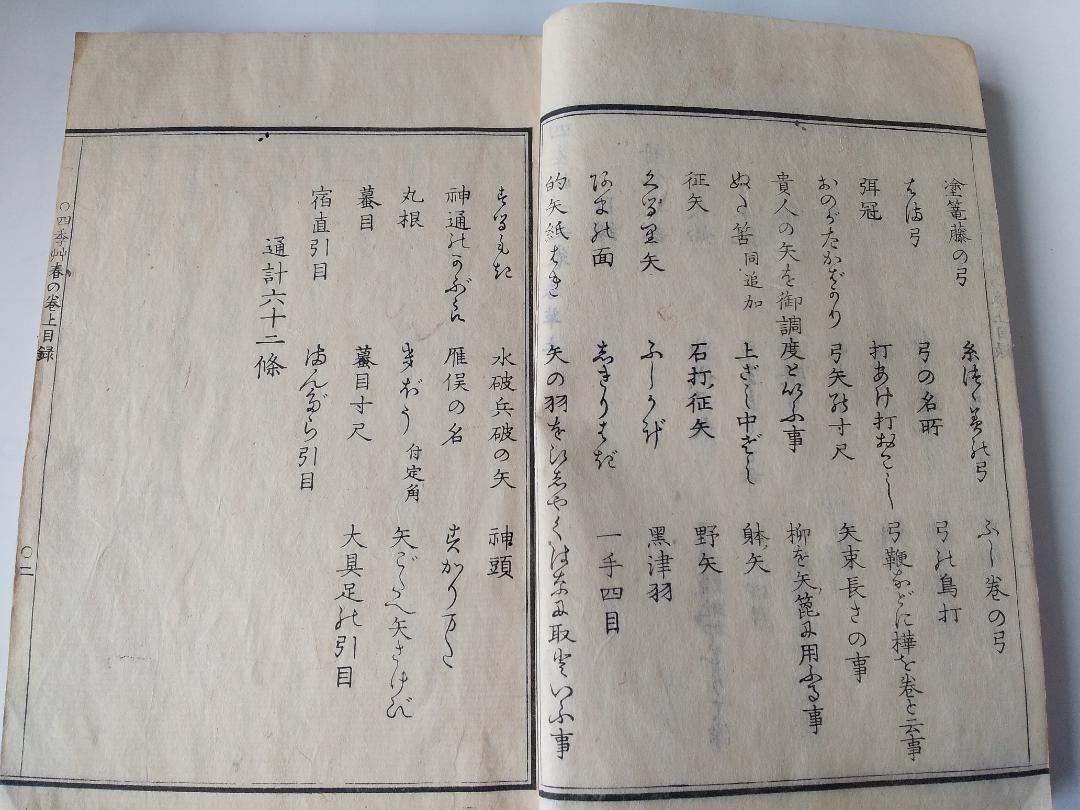 塗篭藤の弓　糸つゝみの弓　ふし巻の弓
はま弓　弓の名所　弓の鳥打
弭冠　打あけ打おこし　弓鞭などに樺を巻と云事
おのがたかばかり　弓矢の寸尺　矢束長さの事
貴人の矢を御調度といふ事　柳を矢箆に用ふる事
ぬた筈 同追加　上ざし中ざし　矢
征矢　石打征矢　野矢
くるり矢　ふしかげ　黒津羽
あまの面　しきりはぎ　一手四目
的矢紙はぎ　矢の羽を 取といふ事
水破兵破の矢　神頭
神通のかぶら　雁俣の名　すかりまた
丸根　付定角　矢ごたへ矢さけび
蟇目　蟇目寸尺　大具足の引目
宿直引目　まんだら引目
通計六十二條
○四季艸春の巻上目録
○二